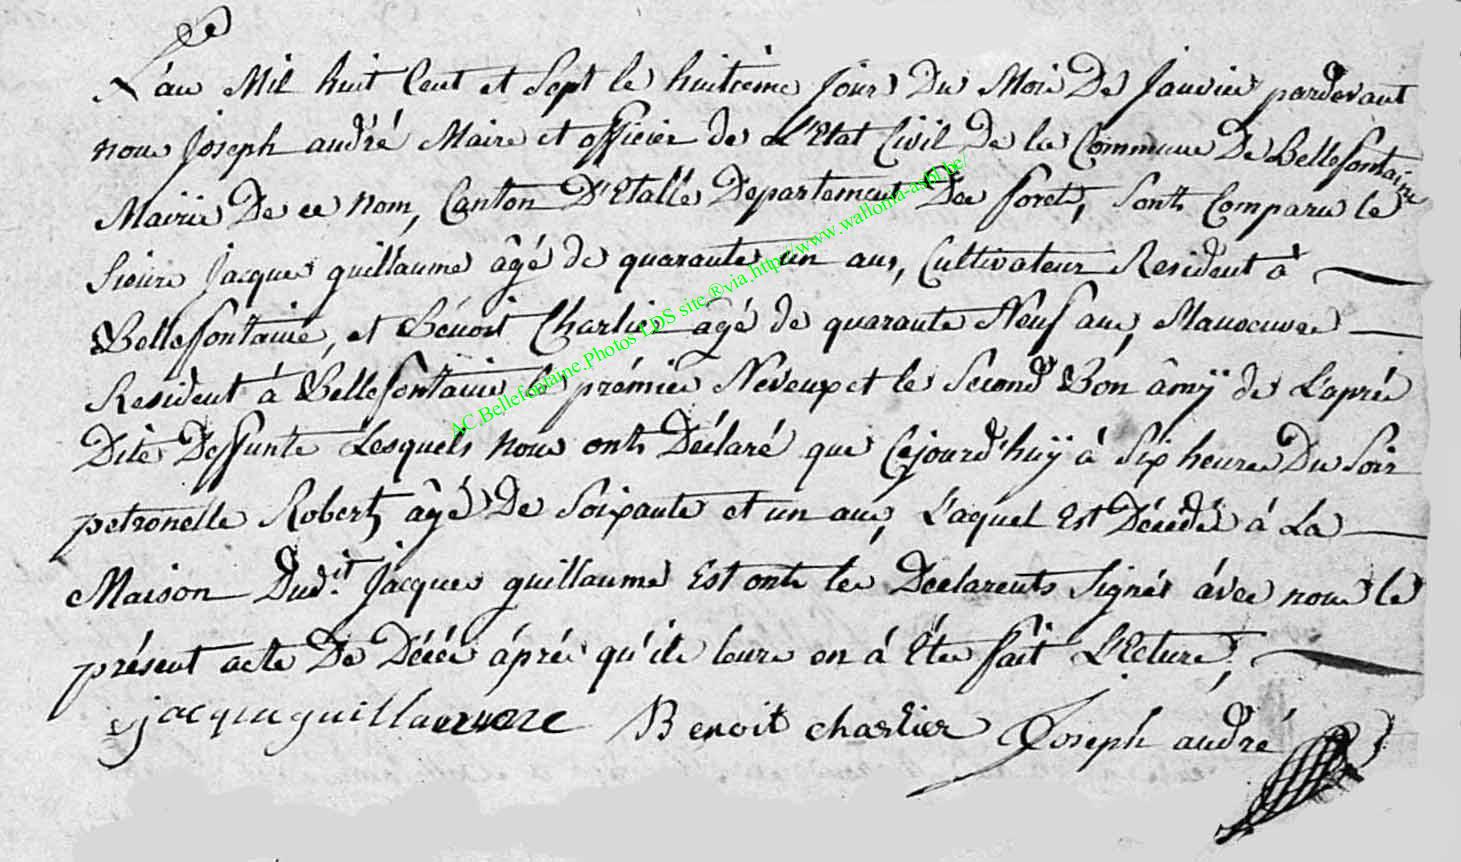 L'an Mil huit Cent et Sept le huitième Jour Du Mois De Janvier pardevant
nous Joseph andré Maire et officier de L'Etat Civil De la Commune De Bellefontaine
Mairie De ce nom, Canton D'Etalle Departement Des forets, Sonts Comparu les
Sieurs Jacque guillaume âgé de quarante un ans, Cultivateur Resident à
Bellefontaine, et Bénoit Charlier âgé de quarante Neuf ans, Manoeuvre
Resident à Bellefontaine le prémier Neveux et le Second Bon âmÿ de L'aprés
Dite Deffunte Lesquels nous onts Déclaré que Cejourd'huÿ à Six heures Du Soir
petronelle Robert, âgé De Soixante et un ans, L'aquel Est Décédés à La
Maison Dud.it Jacques guillaume Est onts les Declarents Signés ávec nous le
présent acte De Décés áprés qu'ils leurs on á Étés fait L'Ecture,
jacque guillaumne Benoit charlier Joseph andré
AC.Bellefontaine.Photos LDS site ®via.http//www.wallonia-asbl.be/